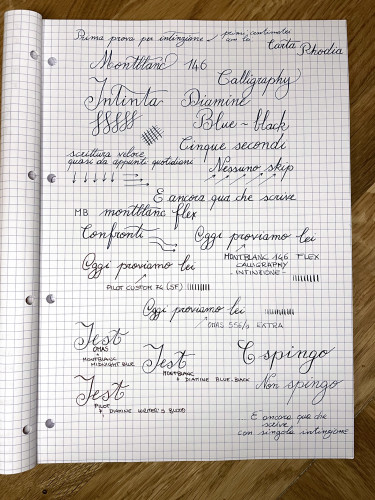 Prima prova per intinzione / primi centimetri
con la Carta Rhodia
Montblanc 146
Calligraphy
Intinta Diamine
Blue-black
Cinque secondi
scrittura veloce
quasi da appunti quotidiani
Nessuno skip
E ancora qua che scrive
MB montblanc flex
Confronti
Oggi proviamo lei
MONTBLANC 146 FLEX
CALLIGRAPHY
INTINZIONE -
Oggi proviamo lei
PILOT CUSTOM FA (SF)
Oggi proviamo lei
OMAS 556/S EXTRA
Test
OMAS
+
MONTBLANC
MIDNIGHT BLUE
Test
MONTBLANC
+ DIAMINE BLUE-BLACK
C spingo
Non spingo
Test
PILOT
+ DIAMINE WRITER'S BLOOD
E ancora qua che
scrive
con singola intinzione